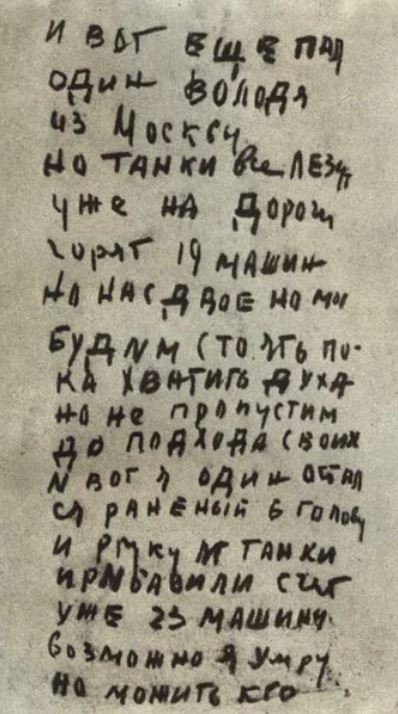 И ВОТ ЕЩЕ ПАЛ
ОДИН ВОЛОДЯ
ИЗ МОСКВЫ
НО ТАНКИ Все ЛЕЗУТ
уже НА ДОРОГИ
горят 19 МАШИН
НО НАС ДВОЕ НО МЫ
БУДИМ СТОЯТЬ ПО-
КА ХВАТИТЬ ДУХА
НО НЕ ПРОПУСТИМ
ДО ПОДХОДА СВОИХ
И ВОТ Я ОДИН ОСТАЛ
СЯ РАНЕНЫЙ В ГОЛОВУ
И РУКУ И ТАНКИ
ПРИБАВИЛИ СЧЕТ
УЖЕ 23 МАШИНЫ
ВОЗМОЖНО Я УМРУ
НО МОЖИТЬ КТО